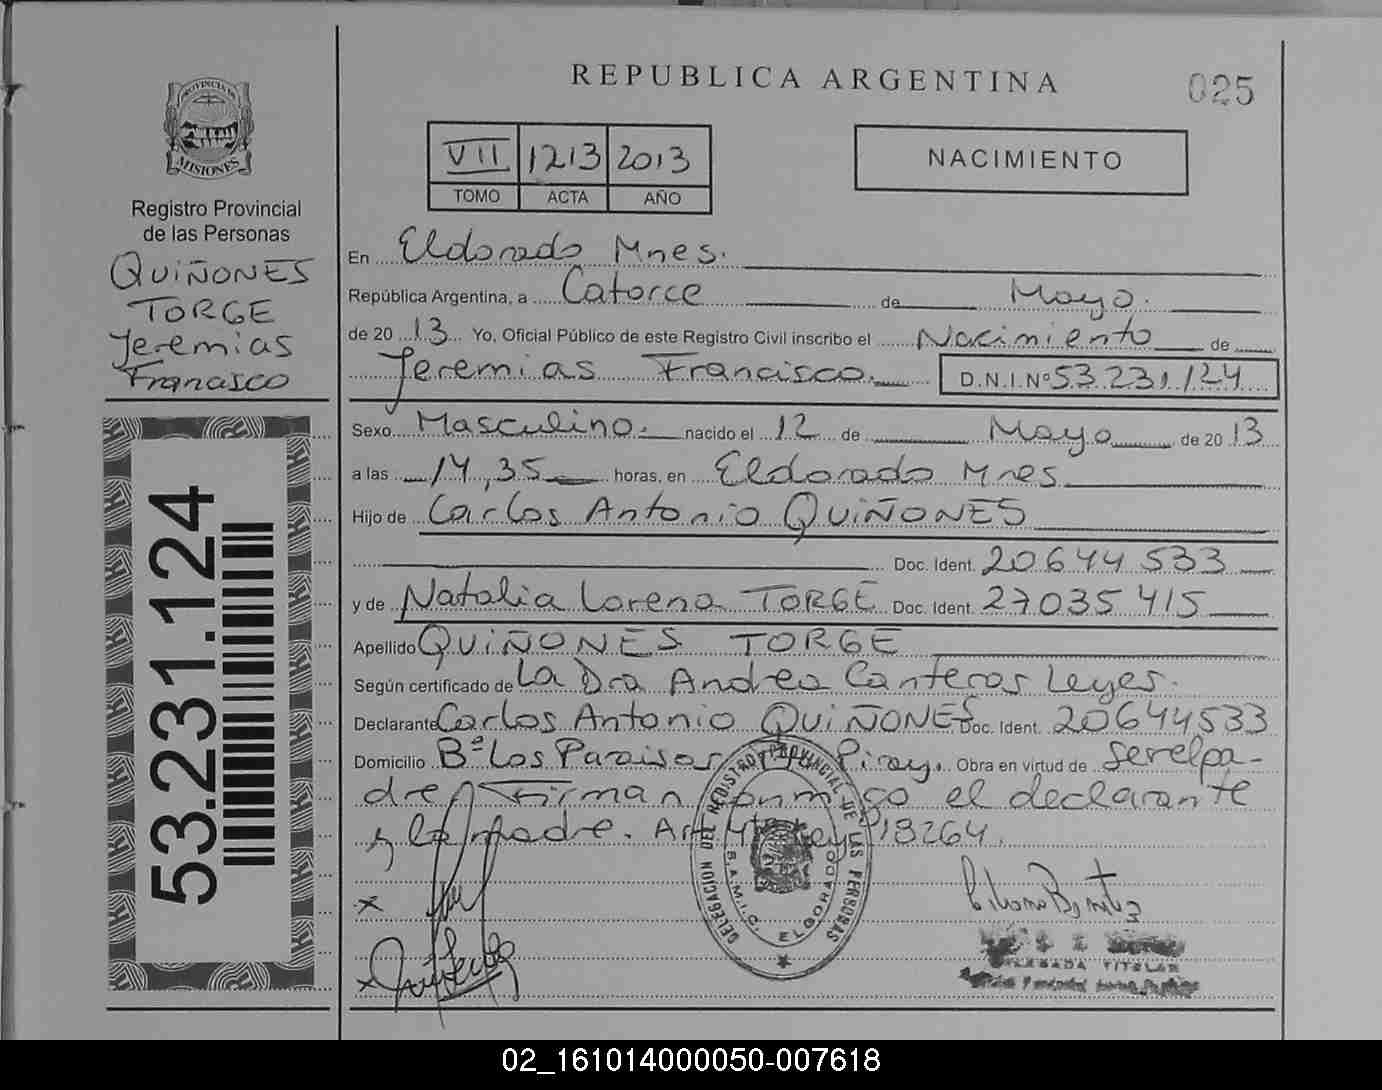 REPUBLICA ARGENTINA
025
PROVINCIA DE
MISIONES
Registro Provincial
de las Personas
QUIÑONES
TORGE
Jeremias
Francisco
53.231.124
VII 1213 2013
TOMO ACTA AÑO
NACIMIENTO
En Eldorado Mnes.
República Argentina, a Catorce de Mayo.
de 20 13 Yo, Oficial Público de este Registro Civil inscribo el Nacimiento de
Jeremias Francisco. D.N.I.Nº 53.231.124
Sexo Masculino. nacido el 12 de Mayo de 20 13
a las 14,35 horas, en Eldorado Mnes
Hijo de Carlos Antonio QUIÑONES
Doc. Ident. 20644533
y de Natalia Lorena TORGE Doc. Ident. 27035415
Apellido QUIÑONES TORGE
Según certificado de La Dra Andrea Canteros Leyes.
Declarante Carlos Antonio QUIÑONES Doc. Ident. 20644533
Domicilio Bº Los Paraisos Piray. Obra en virtud de Serelpa-
dre Firman conmigo el declarante
y la madre. Art Ley 18264.
DELEGACION DEL REGISTRO PROVINCIAL DE LAS PERSONAS
S.A.M.I.C. ELDORADO
x
x
TITULAR
02_161014000050-007618